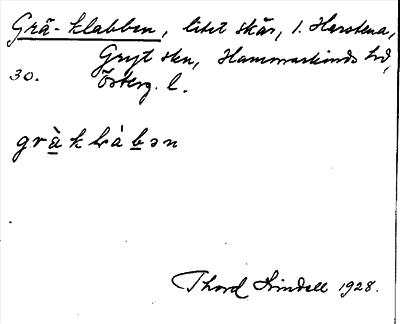 Grä-klabben, litet skär, l. Harstena,
Gryt skn, Hammarkinds hd,
30. Österg. l.
gràklàbən
Thord Lindell 1928.